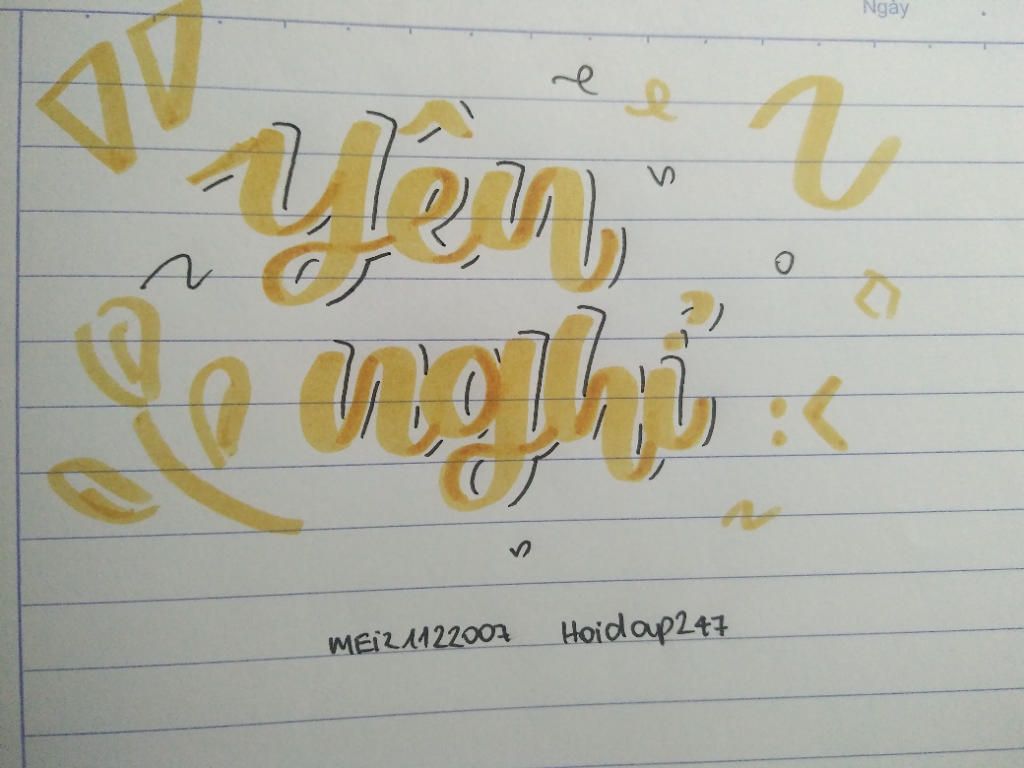 Ngày
Yên
nghỉ
:<
MEi21122007 Hoidap247